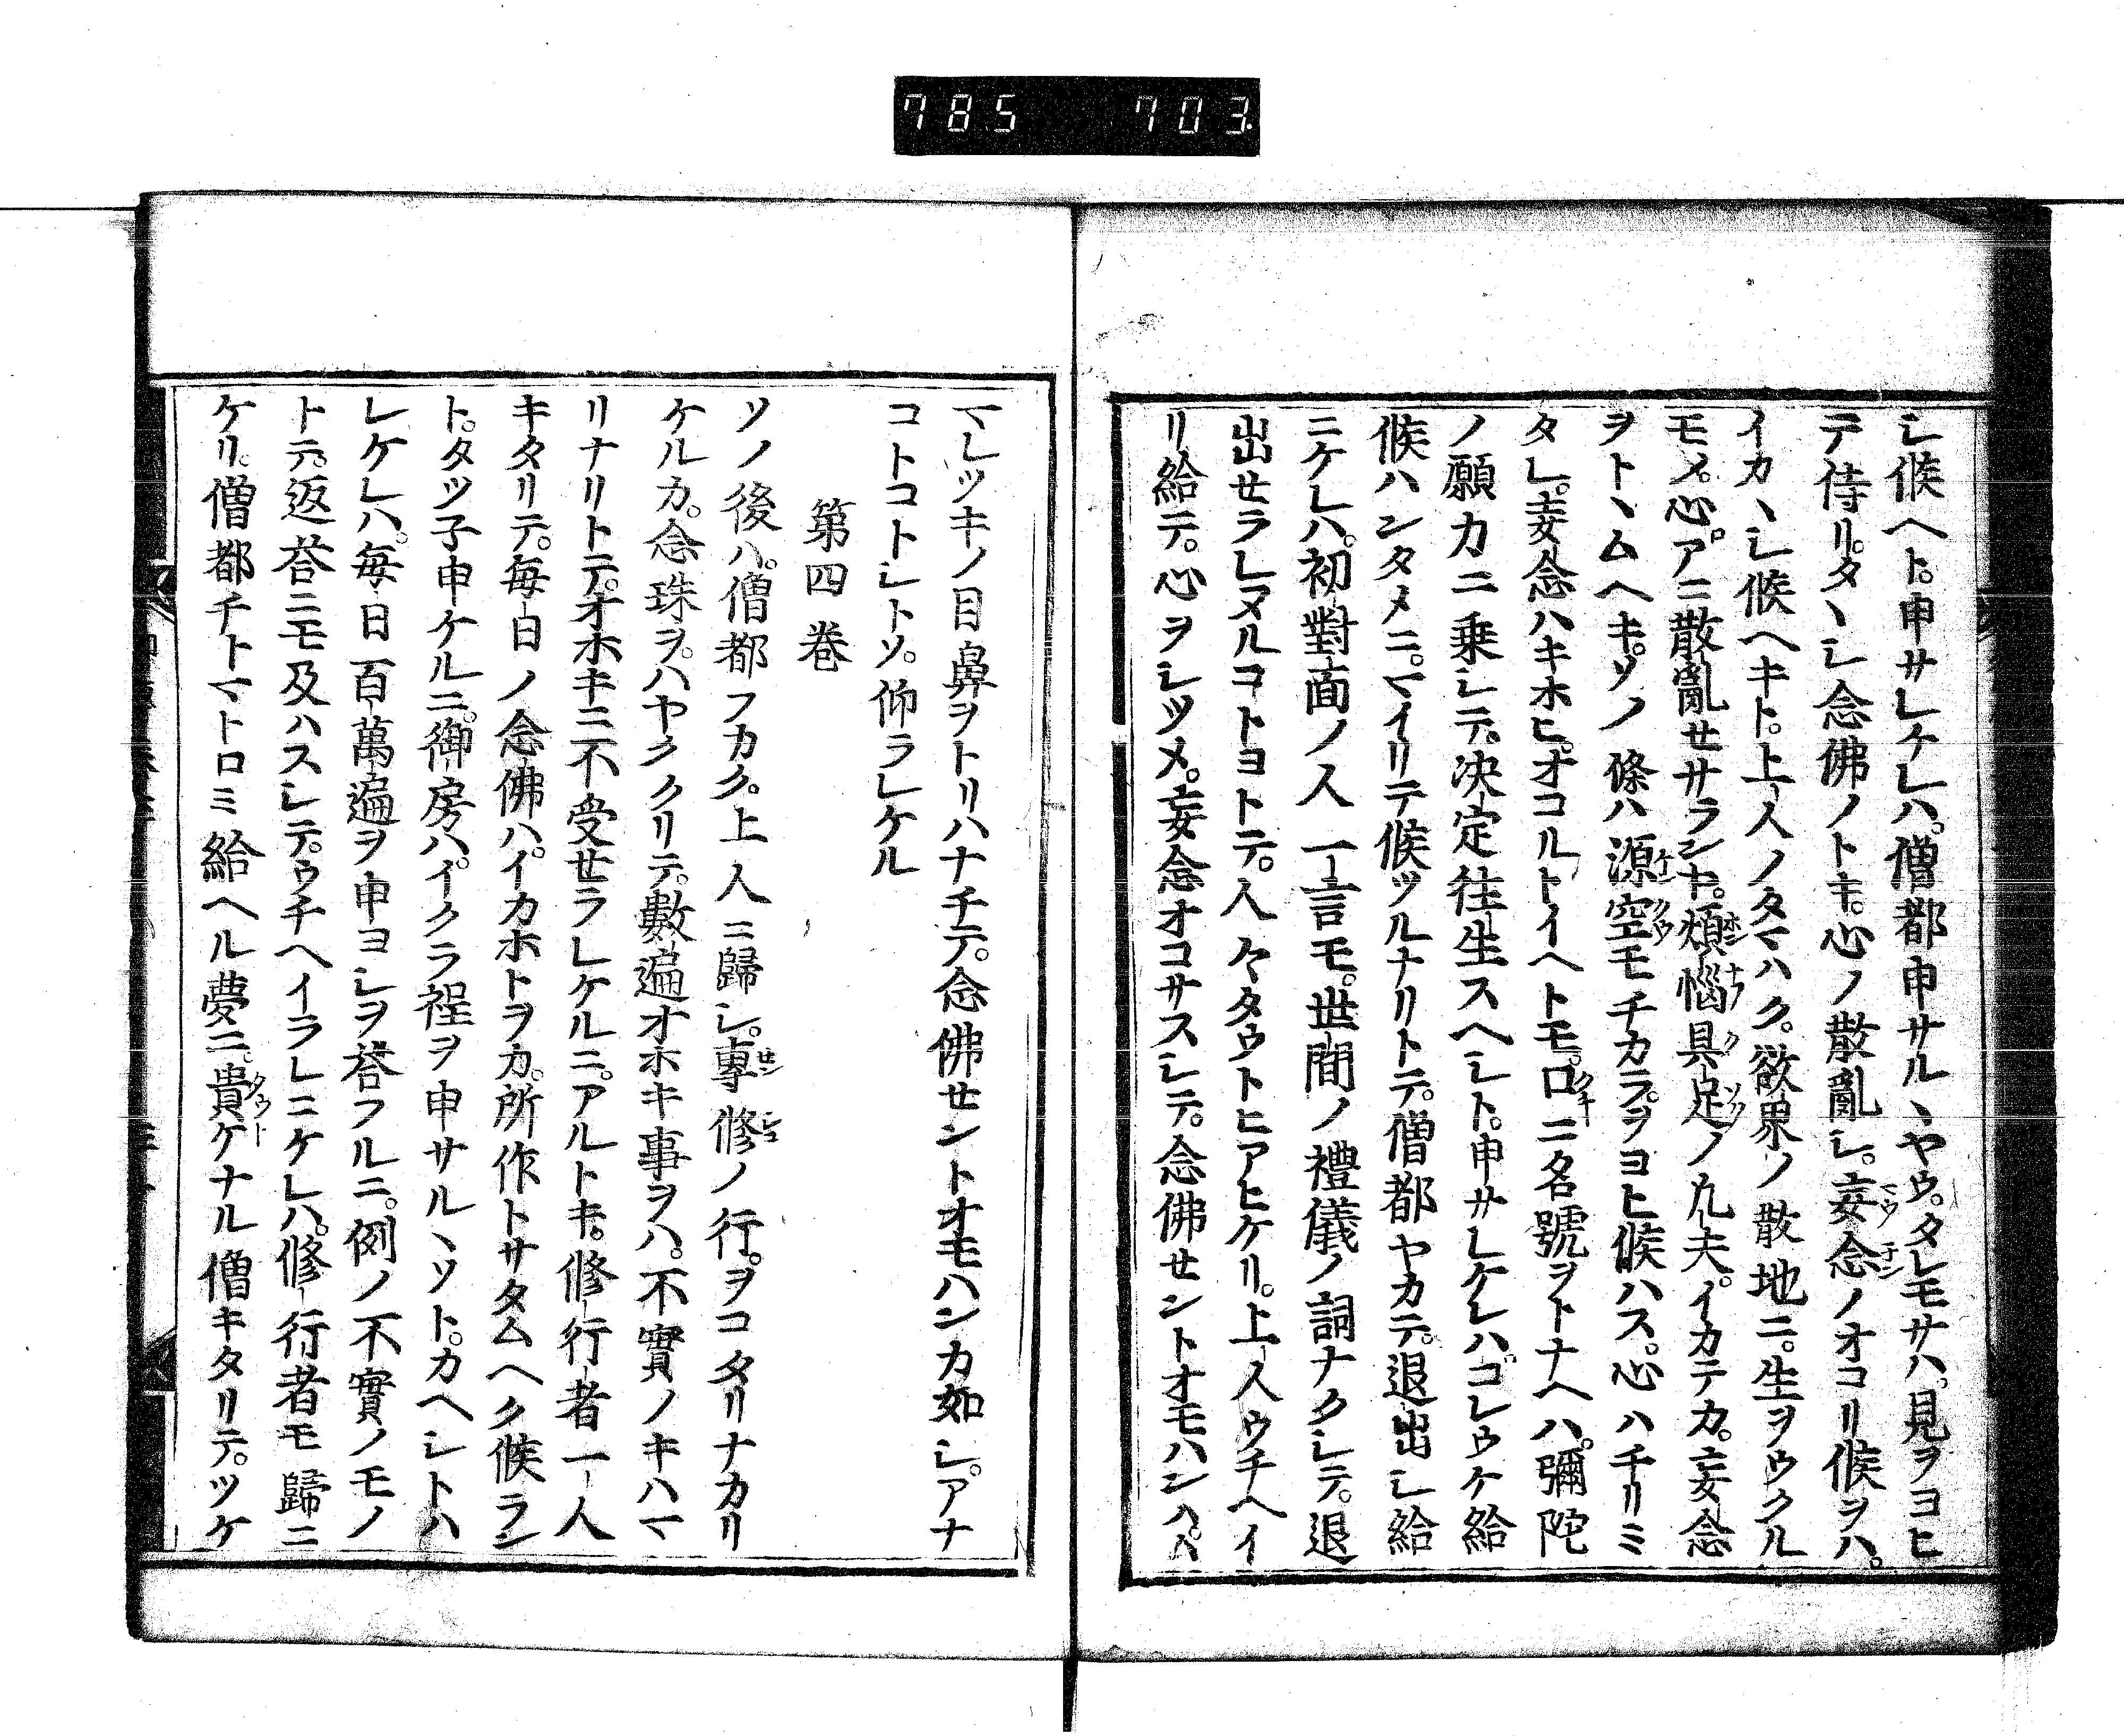 785 703
シ候ヘト。申サレケレハ。僧都申サルヽヤウ。タレモサハ。見ヲヨヒ
テ侍リ。タヽシ念佛ノトキ。心ノ散亂シ。妄念ノオコリ候ヲハ。
イカヽシ候ヘキト。上人ノタマハク。欲界ノ散地ニ。生ヲウクル
モノ。心。アニ散亂セサランヤ。煩惱具足ノ凡夫。イカテカ。妄念
ヲトヽムヘキ。ソノ條ハ源空モチカラヲヨヒ候ハス。心ハチリミ
タレ。妄念ハキホヒ。オコルトイヘトモ。口ニ名號ヲトナヘハ。彌陀
ノ願力ニ乗シテ。決定往生スヘシト。申サレケレハ。コレウケ給
候ハンタメニ。マイリテ候ツルナリトテ。僧都ヤカテ。退出シ給
ニケレハ。初對面ノ人一言モ。世間ノ禮儀ノ詞ナクシテ。退
出セラレヌルコトヨトテ。人々タウトヒアヒケリ。上人ウチヘイ
リ給テ。心ヲシツメ。妄念オコサスシテ。念佛セントオモハンハ。ヘ
マレツキノ目鼻ヲトリハナチテ。念佛セントオモハンカ如シ。アナ
コトコトシトソ。仰ラレケル
第四巻
ソノ後ハ。僧都フカク。上人ニ歸シ。專修ノ行。ヲコタリナカリ
ケルカ。念珠ヲ。ハヤククリテ。數遍オホキ事ヲハ。不實ノキハマ
リナリトテ。オホキニ不受セラレケルニ。アルトキ。修行者一人
キタリテ。毎日ノ念佛ハ。イカホトヲカ。所作トサタムヘク候ラン
ト。タツ子申ケルニ。御房ハ。イクラ程ヲ申サルヽソト。カヘシトハ
レケレハ。毎日百萬遍ヲ申ヨシヲ荅フルニ。例ノ不實ノモノ
トテ。返荅ニモ及ハスシテ。ウチヘイラレニケレハ。修行者モ歸ニ
ケリ。僧都チトマトロミ給ヘル夢ニ。貴ケナル僧キタリテ。ツケ